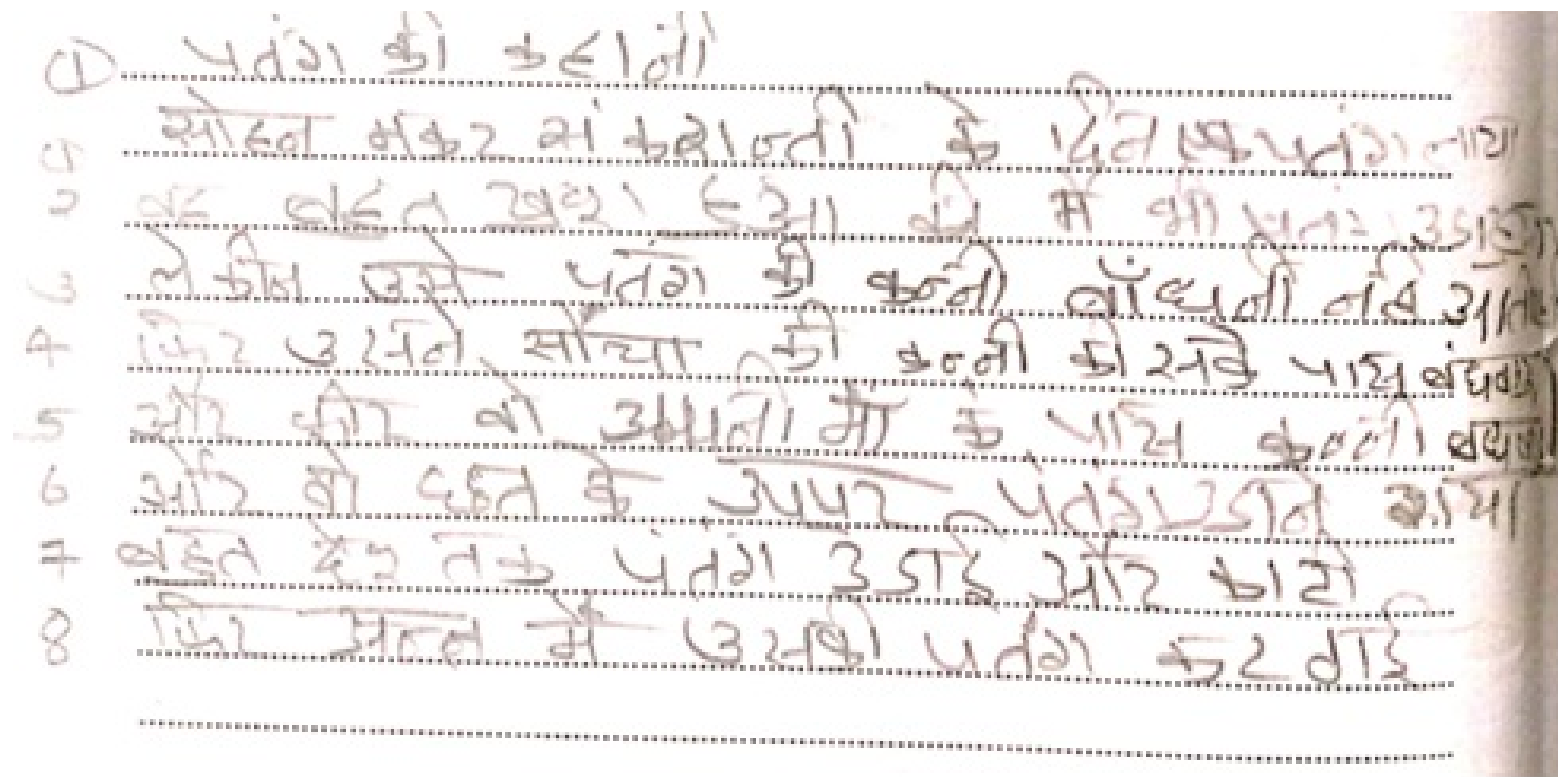 ① पतंग की कहानी
१ सोहन मकर संकरान्ती के दिन एक पतंग लाया
2 वह बहुत खुश हुआ की में भी पतंग उडाऊगा
3 लेकीन उसे पतंग की कन्नी बाँधनी नही आती
4 फिर उसने सोंचा की कन्नी कीसके पास बंधवाऊ
5 और फीर वो अपनी माँ के पास कन्नी
6 और वो छत के उपपर पंतग उडाने गया
7 बहुत देर तक पंतग उडाई और काटी
8 फिर अन्त में उसकी पतंग कट गाई